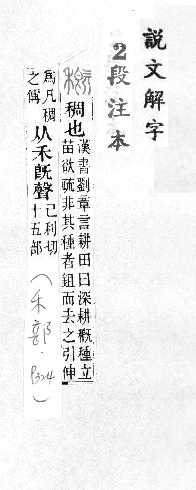 說文解字
2段注本
稠也
漢書劉章言耕田曰深耕穊穜立
苗欲疏非其種者鉏而去之引伸
爲凡稠
之偁
从禾旣聲
己利切
十五部
(禾部.P324)